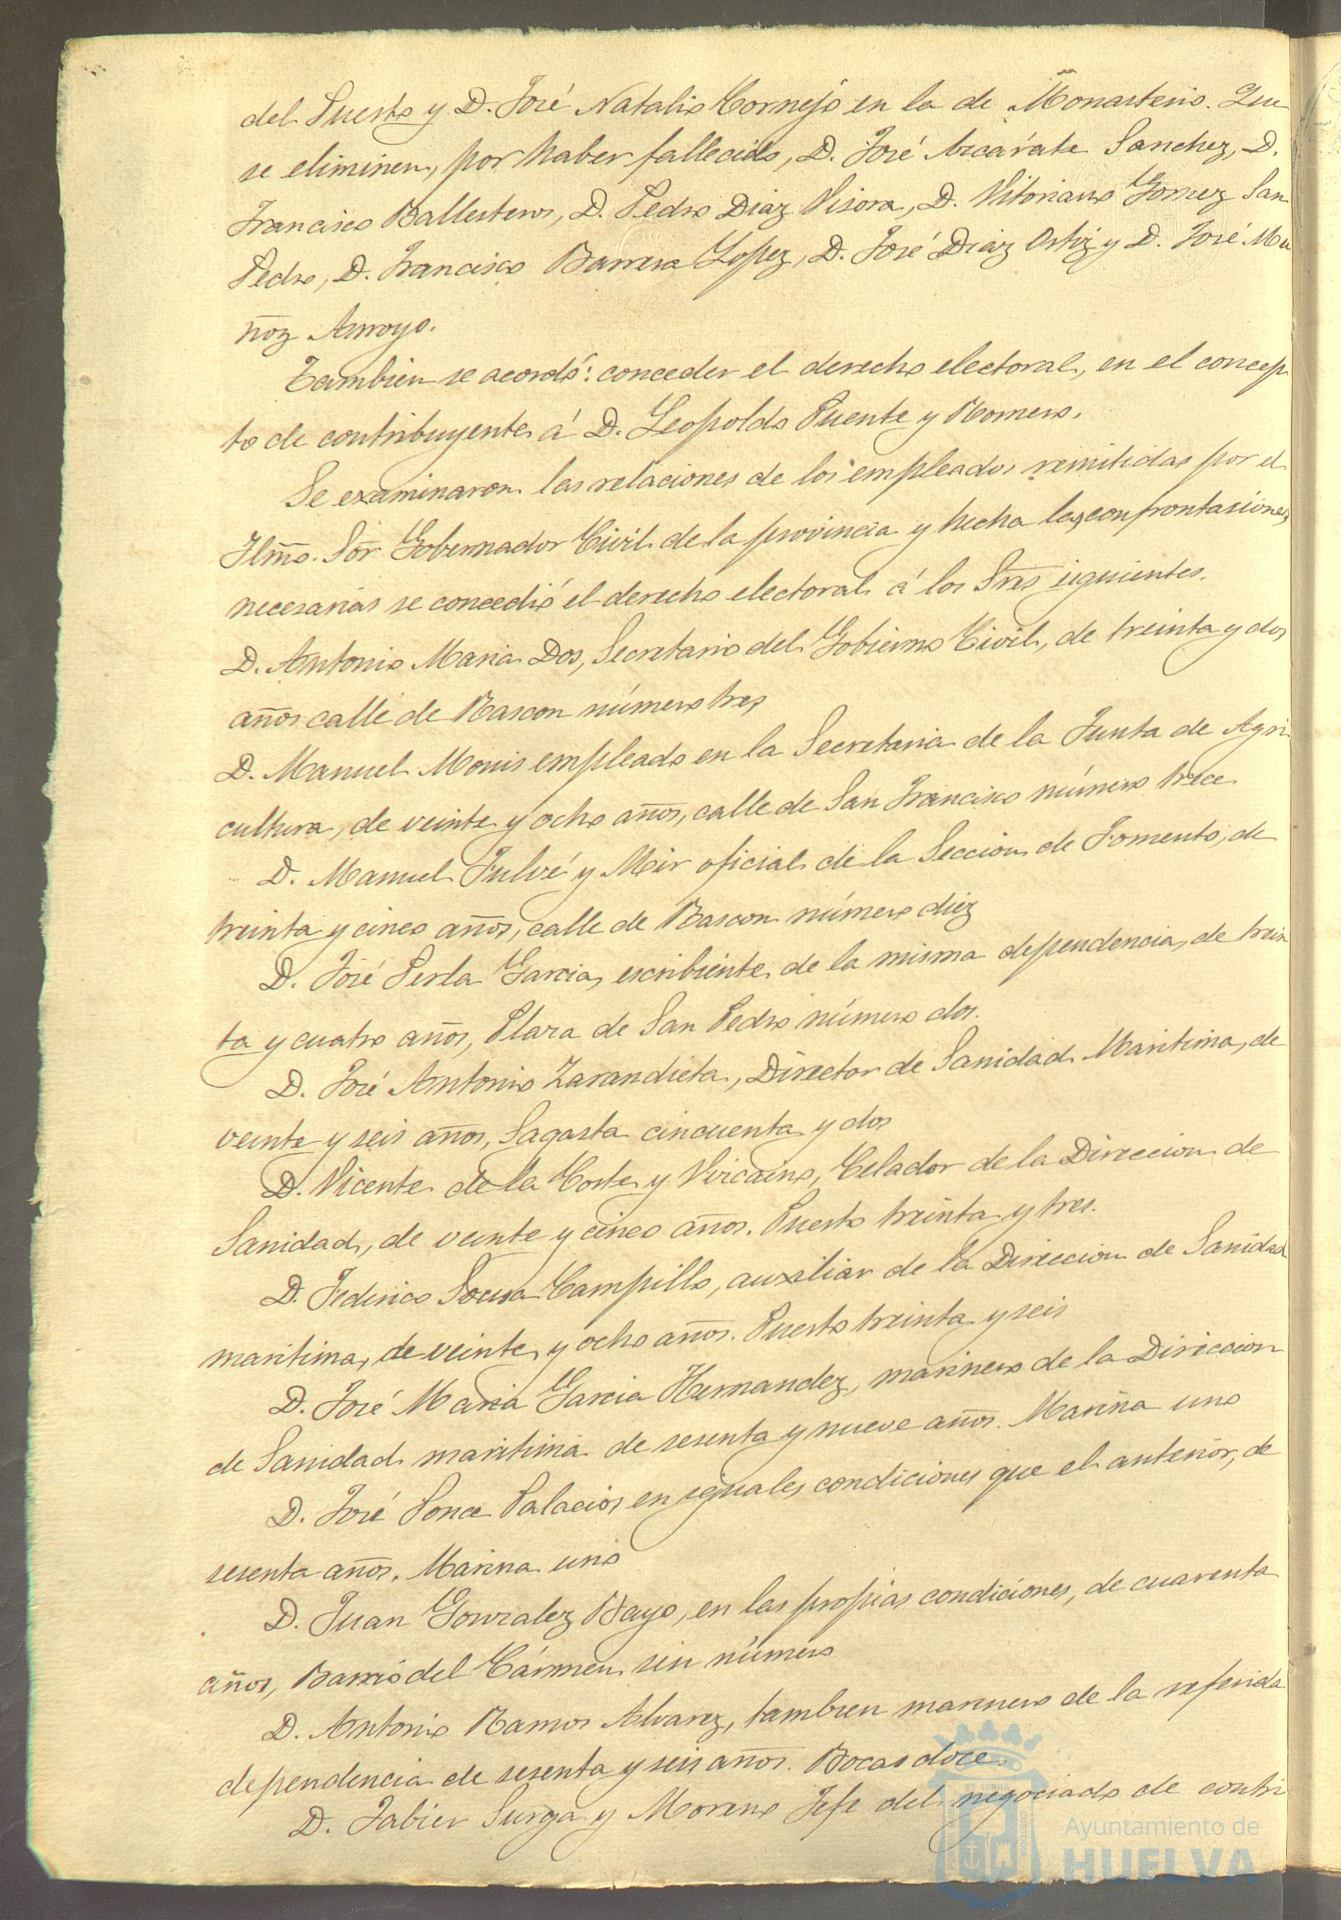 del Puerto y D. José Natalio Cornejo en la de Monasterio. Que
se eliminen, por haber fallecido, D. José Azcárate Sanchez, D.
Francisco Ballesteros, D. Pedro Diaz Visora, D. Vitoriano Gomez San
Pedro, D. Francisco Barrera Lopez, D. José Diaz Ortiz y D. José Mu
ñoz Arroyo.
Tambien se acordó: conceder el derecho electoral, en el concep
to de contribuyente á D. Leopoldo Puente y Romero.
Se examinaron las relaciones de los empleados remitidas por el
Ilmo. Sor. Gobernador Civil de la provincia y hecha las confrontaciones
necesarias se concedió el derecho electoral á los Sres siguientes.
D. Antonio Maria Dos, Secretario del Gobierno Civil, de treinta y dos
años calle de Rascon número tres
D. Manuel Monis empleado en la Secretaria de la Junta de Agri
cultura, de veinte y ocho años, calle de San Francisco número trece
D. Manuel Fulvé y Mir oficial de la Seccion de Fomento, de
treinta y cinco años, calle de Rascon número diez
D. José Perla Garcia, escribiente de la misma dependencia, de trein
ta y cuatro años, Plaza de San Pedro número dos.
D. José Antonio Zarandieta, Director de Sanidad Maritima, de
veinte y seis años, Sagasta cincuenta y dos
D. Vicente de la Corte y Vizcaino, Celador de la Direccion de
Sanidad, de veinte y cinco años. Puerto treinta y tres.
D. Federico Sousa Campillo, auxiliar de la Direccion de Sanidad
maritima, de veinte y ocho años. Puerto treinta y seis
D. José Maria Garcia Hernandez, marinero de la Direccion
de Sanidad maritima de sesenta y nueve años. Marina uno
D. José Ponce Palacios en iguales condiciones que el anterior, de
sesenta años. Marina uno
D. Juan Gonzalez Bayo, en las propias condiciones, de cuarenta
años, Barrio del Cármen sin número
D. Antonio Ramos Alvarez, tambien marinero de la referida
dependencia de sesenta y seis años. Bocas doce
D. Jabier Surga y Moreno Jefe del negociado de contri
Ayuntamiento de
HUELVA